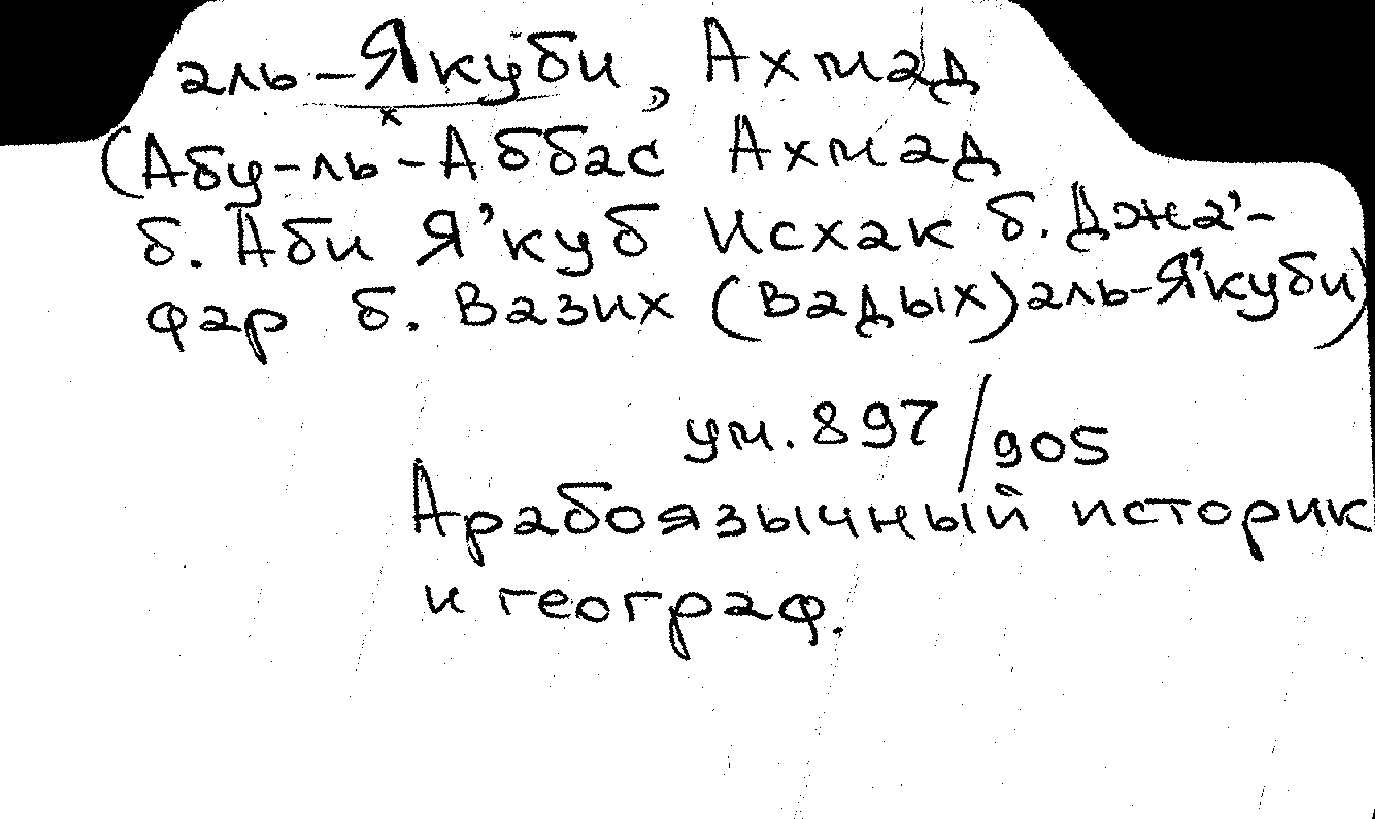 аль-Якуби, Ахмад
(Абу-ль-Аббас Ахмад
б. Аби Я'куб Исхак б. Джа'-
фар б. Вазих (Вадых) аль-Я'куби)
ум. 897/905
Арабоязычный историк
и географ.